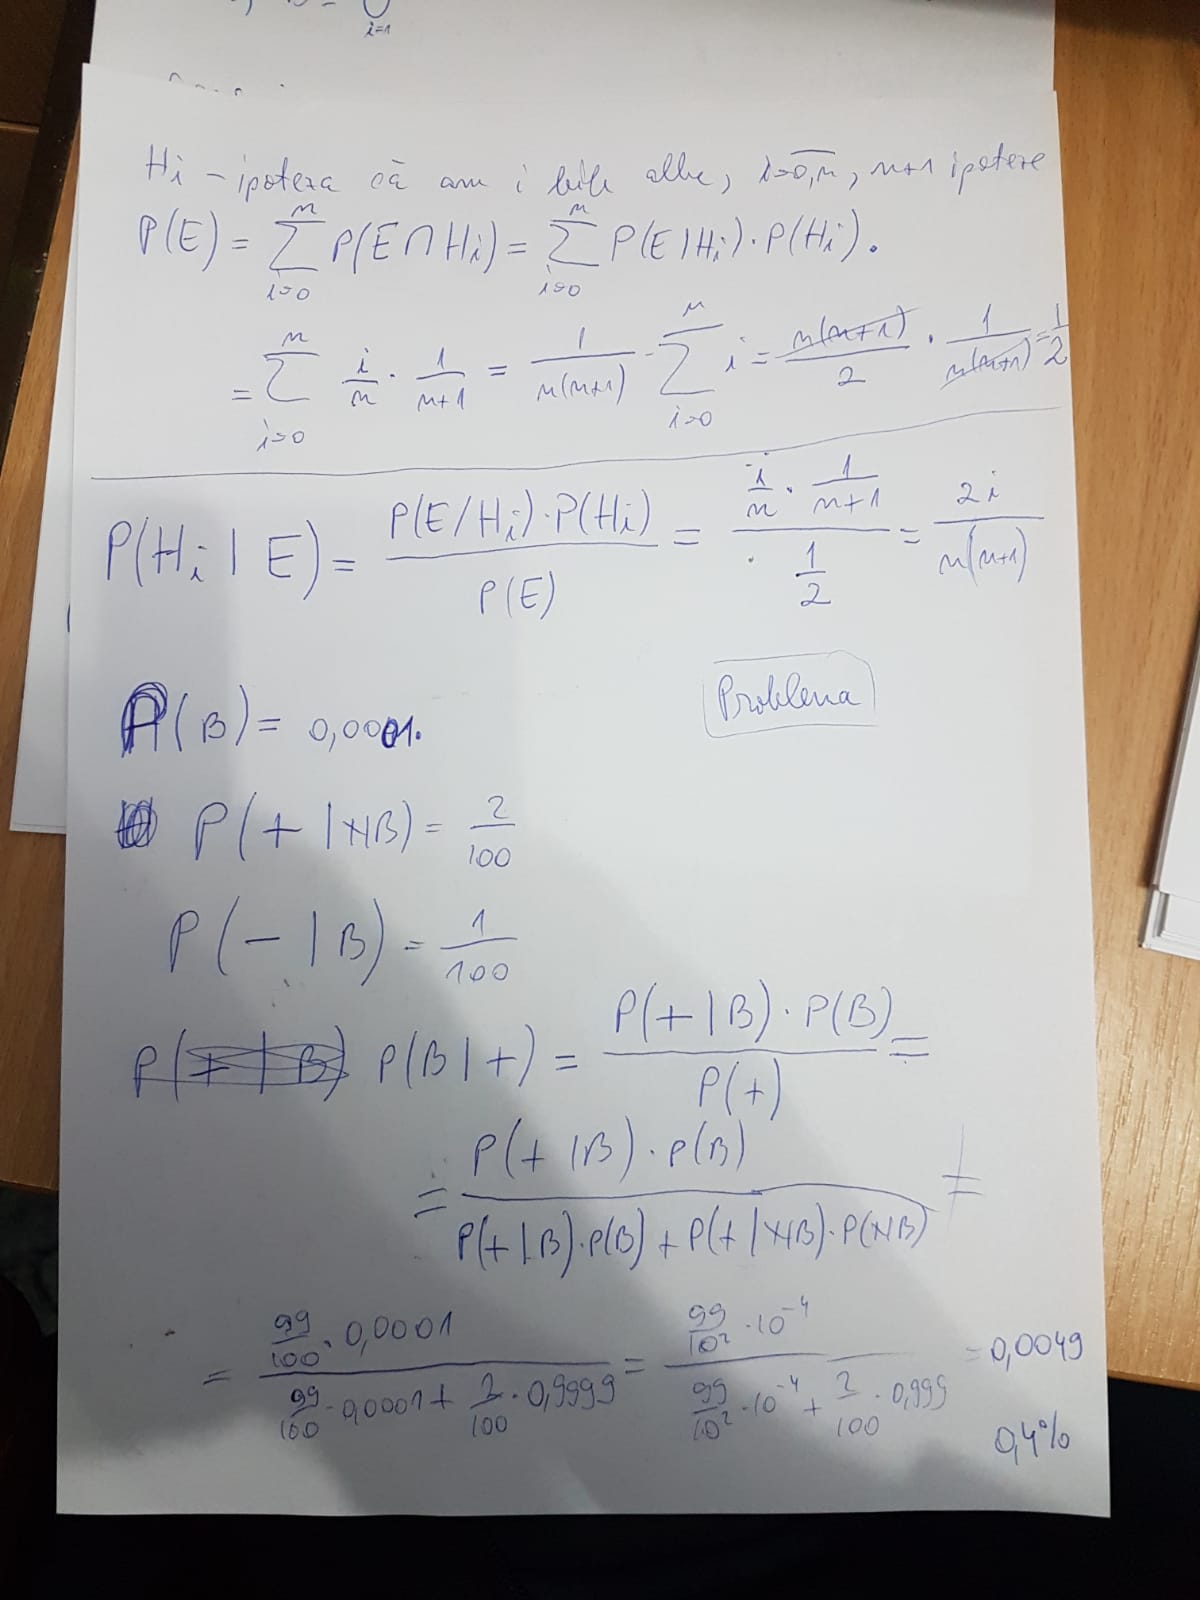 i=1
Hi - ipoteza că am i bile albe, i=0,n, n+1 ipoteze
P(E) = Σ_{i=0}^{n} P(E∩Hi) = Σ_{i=0}^{n} P(E|Hi)·P(Hi).
= Σ_{i=0}^{n} i/n · 1/(n+1) = 1/(n(n+1)) · Σ_{i=0}^{n} i = n(n+1)/2 · 1/(n(n+1)) = 1/2
P(Hi | E) = P(E/Hi)·P(Hi) / P(E) = (i/n · 1/(n+1)) / (1/2) = 2i / n(n+1)
Problema
P(B) = 0,0001.
P(+ | NB) = 2/100
P(- | B) = 1/100
P(+ | B) P(B | +) = P(+ | B)·P(B) / P(+) =
= P(+ | B)·P(B) / (P(+ | B)·P(B) + P(+ | NB)·P(NB)) =
= (99/100 · 0,0001) / (99/100 · 0,0001 + 2/100 · 0,9999) = (99/10² · 10⁻⁴) / (99/10² · 10⁻⁴ + 2/100 · 0,999) = 0,0049
0,4%